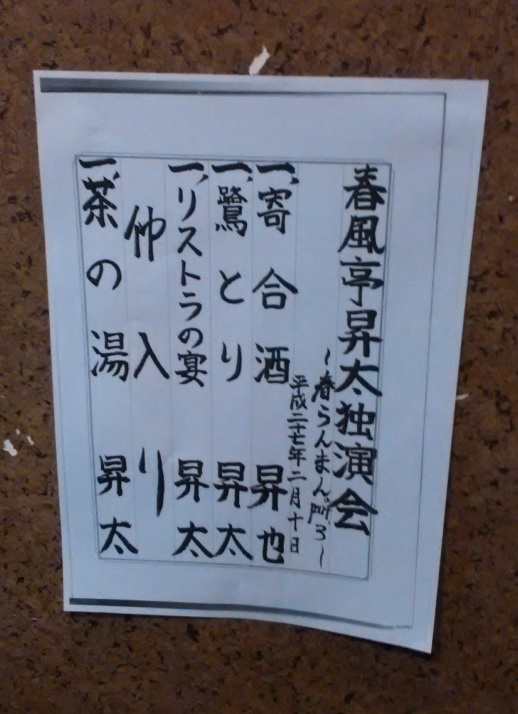 春風亭昇太独演会
~春らんまんvol.3~
平成二十七年二月十日
一、寄合酒 昇也
一、鷺とり 昇太
一、リストラの宴 昇太
仲入り
一、茶の湯 昇太